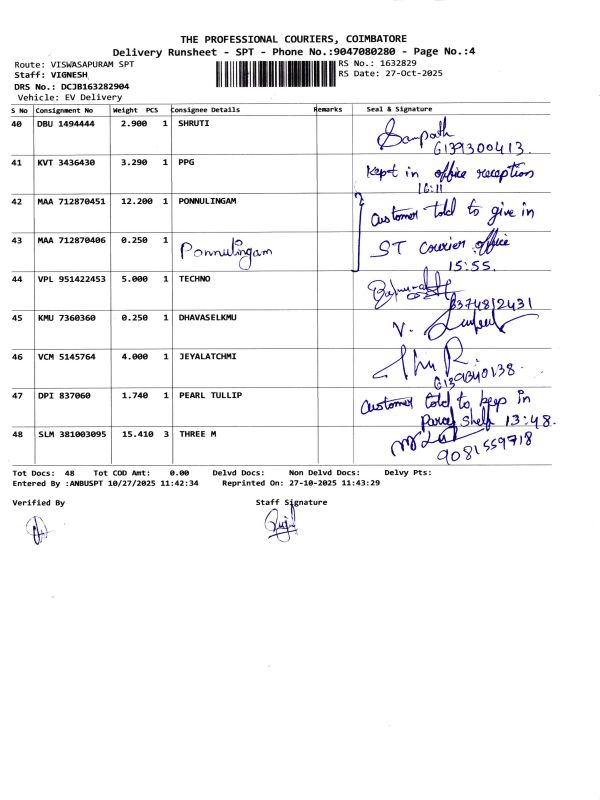 THE PROFESSIONAL COURIERS, COIMBATORE
Delivery Runsheet - SPT - Phone No.:9047080280 - Page No.:4
Route: VISWASAPURAM SPT
RS No.: 1632829
Staff: VIGNESH
RS Date: 27-Oct-2025
DRS No.: DCJB163282904
Vehicle: EV Delivery
S No Consignment No Weight PCS Consignee Details Remarks Seal & Signature
40 DBU 1494444 2.900 1 SHRUTI Sampath
6139300413.
41 KVT 3436430 3.290 1 PPG Kept in office reception
16:11
42 MAA 712870451 12.200 1 PONNULINGAM Customer told to give in
43 MAA 712870406 0.250 1 Ponnulingam ST Courier office
15:55.
44 VPL 951422453 5.000 1 TECHNO
6374812431
45 KMU 7360360 0.250 1 DHAVASELKMU V.
46 VCM 5145764 4.000 1 JEYALATCHMI
47 DPI 837060 1.740 1 PEARL TULLIP Customer told to keep in
Parcel Shelf 13:48.
48 SLM 381003095 15.410 3 THREE M
9081559718
Tot Docs: 48 Tot COD Amt: 0.00 Delvd Docs: Non Delvd Docs: Delvy Pts:
Entered By :ANBUSPT 10/27/2025 11:42:34 Reprinted On: 27-10-2025 11:43:29
Verified By Staff Signature